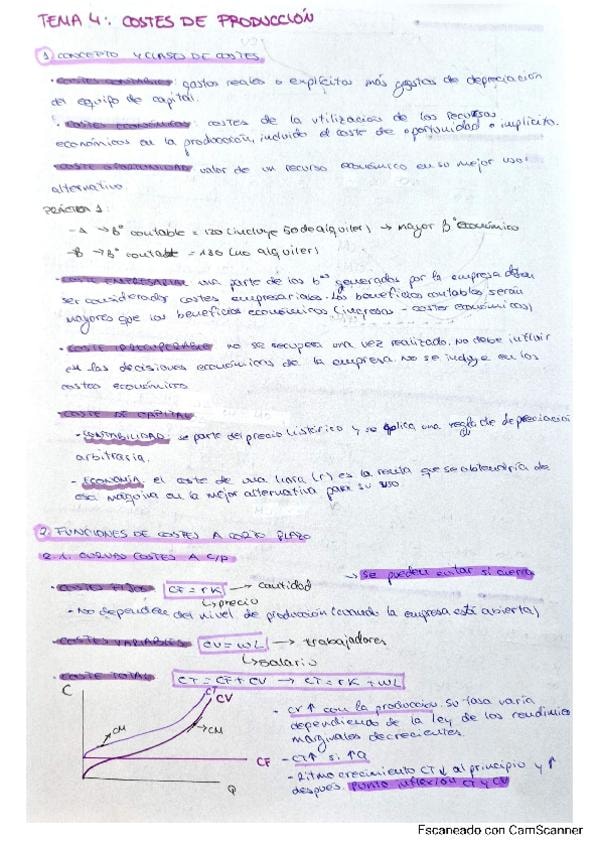 TEMA 4: COSTES DE PRODUCCIÓN
1. CONCEPTO Y CLASES DE COSTES
· COSTES CONTABLES: gastos reales o explícitos más gastos de depreciación
del equipo de capital.
· COSTES ECONÓMICOS: costes de la utilización de los recursos
económicos en la producción, incluido el coste de oportunidad o implícito.
· COSTE OPORTUNIDAD valor de un recurso económico en su mejor uso
alternativo.
PRÁCTICA 1:
- A → Bº contable = 120 (incluye 50 de alquiler) → mayor Bº económico
- B → Bº contable = 130 (no alquiler)
· COSTE EMPRESARIAL una parte de los bºs generados por la empresa deben
ser considerados costes empresariales. Los beneficios contables serán
mayores que los beneficios económicos (ingresos - costes económicos)
· COSTE IRRECUPERABLE no se recupera una vez realizado. No debe influir
en las decisiones económicas de la empresa. No se incluye en los
costes económicos
· COSTE DE CAPITAL
- CONTABILIDAD: se parte del precio histórico y se aplica una regla de depreciación
arbitraria.
- ECONOMÍA: el coste de una (r) es la renta que se obtendría de
esa máquina en la mejor alternativa para su uso.
2. FUNCIONES DE COSTES A CORTO PLAZO
2.1. CURVAS COSTES A C/P
→ se pueden evitar si cierra
· COSTES FIJOS CF = rK → cantidad
↳ precio
- No dependen del nivel de producción (cuando la empresa está abierta)
· COSTES VARIABLES CV = wL → trabajadores
↳ salario
· COSTE TOTAL CT = CF + CV → CT = rK + wL
C
CT
CV
CM
CM
CF
Q
- CV ↑ con la producción. Su tasa varía
dependiendo de la ley de los rendimie
marginales decrecientes.
- CT ↑ si ↑ Q
- Ritmo crecimiento CT ↓ al principio y ↑
después. Punto inflexión CT y CV
Escaneado con CamScanner